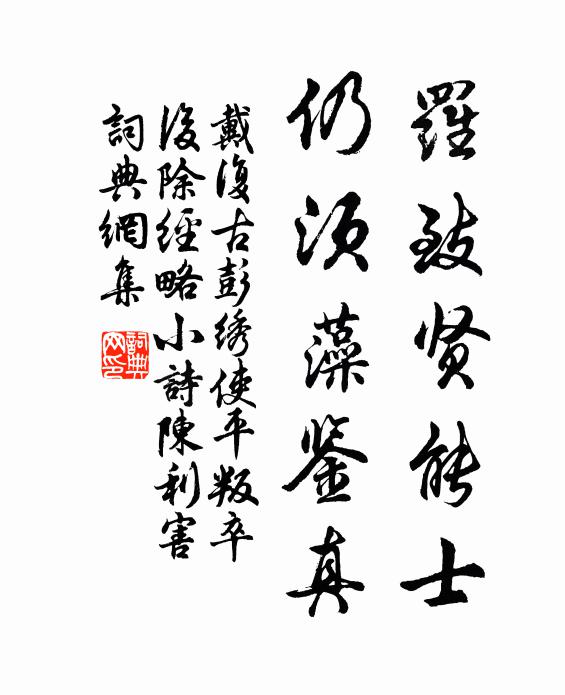 羅致贤能士
仍须藻鉴真
戴復古彭绣使平叛卒
後除經略小詩陳利害
詞典網集
詞典
网印